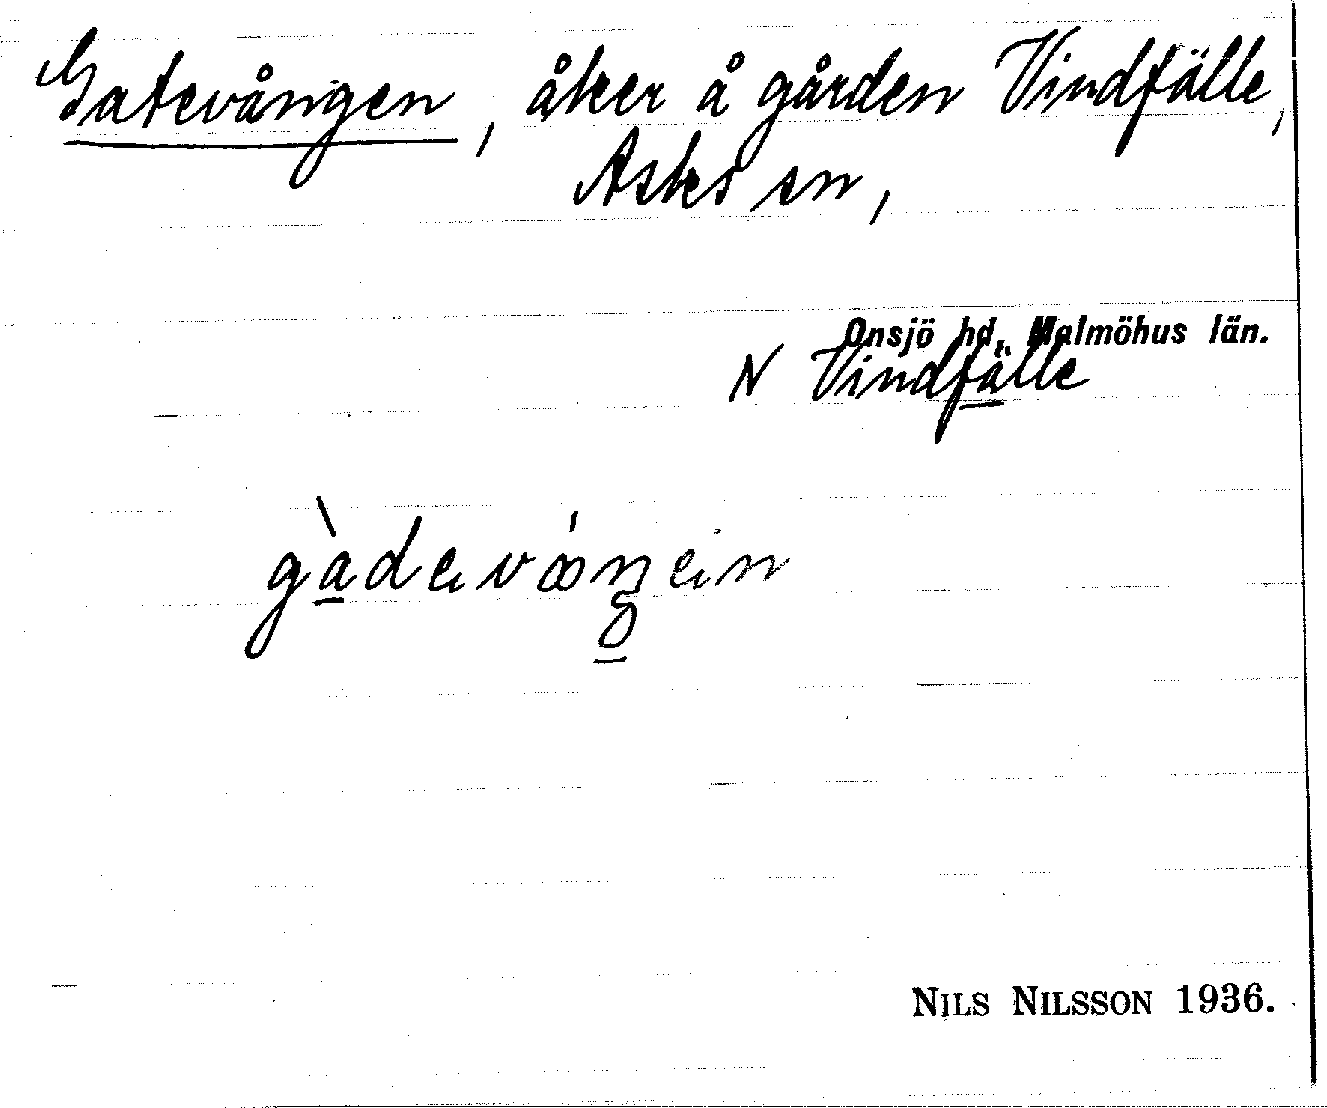 Gatevången, åker å gården Vindfälle,
Asks sn,
Onsjö hd, Malmöhus län.
N Vindfälle
gàdevángen
NILS NILSSON 1936.